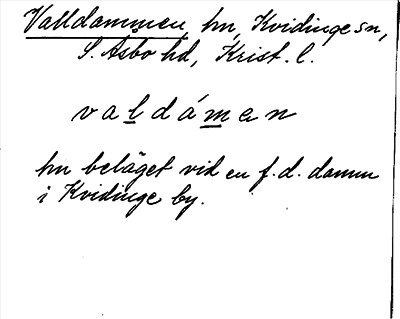 Valldammen, hn, Kvidinge sn,
S. Åsbo hd, Krist. l.
valdámen
hn beläget vid en f.d. damm
i Kvidinge by.